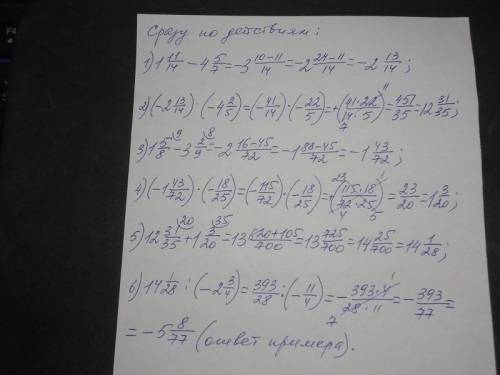 Сразу по действиям:
1) 1 11/14 - 4 5/7 = -3 (10-11)/14 = -2 (24-11)/14 = -2 13/14;
2) (-2 13/14) · (-4 2/5) = (-41/14) · (-22/5) = +(41·22 11/14 7·5) = 451/35 = 12 31/35;
3) 1 5/8 9 - 3 2/9 8 = -2 (16-45)/72 = -1 (88-45)/72 = -1 43/72;
4) (-1 43/72) · (-18/25) = (-115/72) · (-18/25) = +(115 23·18 1/72 4·25 5) = 23/20 = 1 3/20;
5) 12 31/35 20 + 1 3/20 35 = 13 (620+105)/700 = 13 725/700 = 14 25/700 = 14 1/28;
6) 14 1/28 : (-2 3/4) = 393/28 : (-11/4) = - (393·4 1)/(28 7·11) = - 393/77 =
= -5 8/77 (ответ примера).